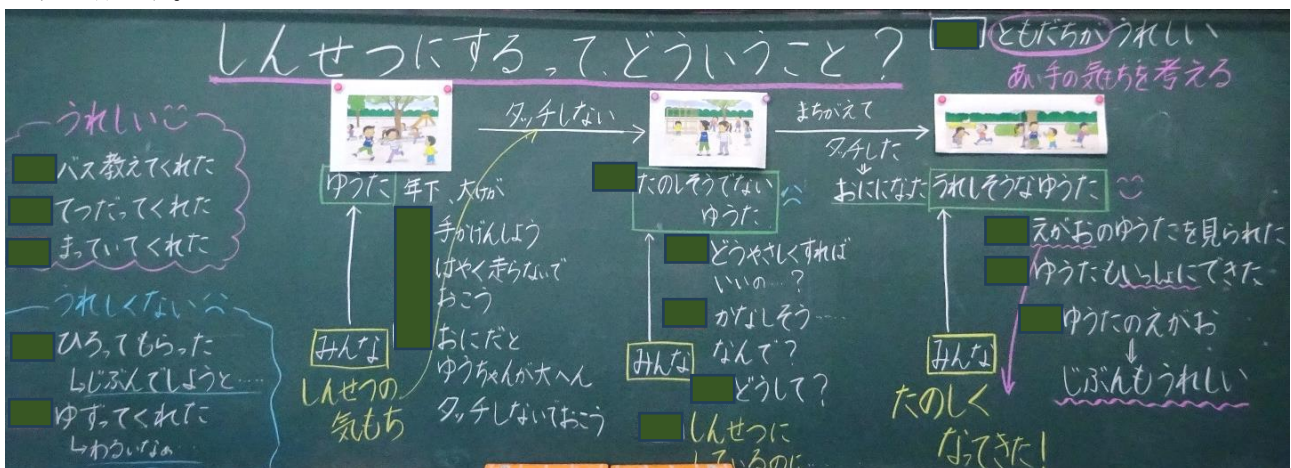 しんせつにするって、どういうこと？
ともだちがうれしい
あい手の気もちを考える
うれしい
バス教えてくれた
てつだってくれた
まっていてくれた
うれしくない
ひろってもらった
↳じぶんでしようと……
ゆずってくれた
↳わるいなぁ
ゆうた
年下、大けが
手かげんしよう
はやく走らないで
おこう
おにだと
ゆうちゃんが大へん
タッチしないでおこう
みんな
しんせつの
気もち
タッチしない
たのしそうでない
ゆうた
どうやさしくすれば
いいの…？
かなしそう……
なんで？
どうして？
みんな
しんせつに
しているのに…
まちがえて
タッチした
⇓
おにになった
うれしそうなゆうた
えがおのゆうたを見られた
ゆうたもいっしょにできた
ゆうたのえがお
⇓
じぶんもうれしい
みんな
たのしく
なってきた！